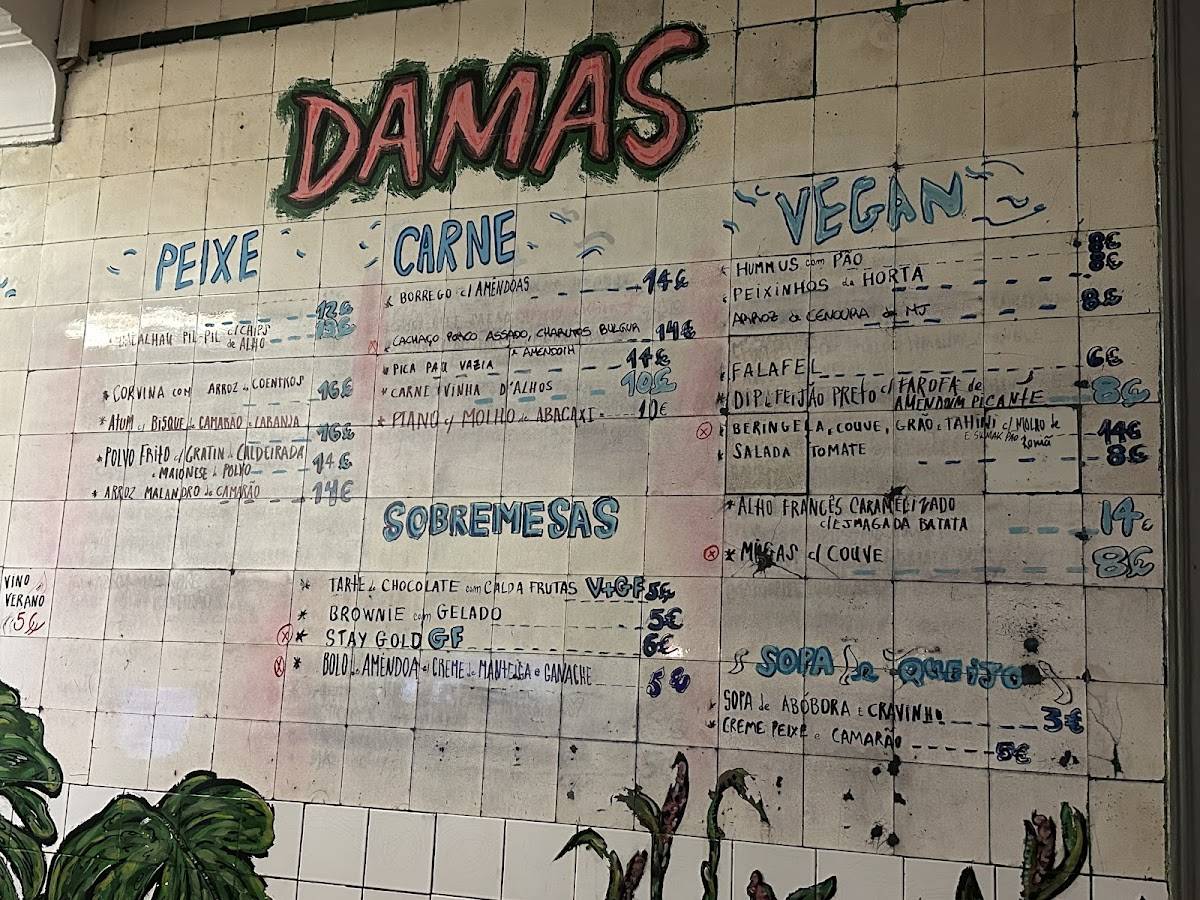 DAMAS
PEIXE
12€
BACALHAU PIL-PIL c/ CHIPS 13€
de ALHO
* CORVINA com ARROZ de COENTROS 16€
* ATUM c/ BISQUE de CAMARÃO e LARANJA 16€
* POLVO FRITO c/ GRATIN de CALDEIRADA
e MAIONESE de POLVO 14€
* ARROZ MALANDRO de CAMARÃO 14€
VINO
VERANO
5€
CARNE
* BORREGO c/ AMÊNDOAS 14€
* CACHAÇO PORCO ASSADO, CHARUTOS BULGUR 14€
e AMENDOIM
* PICA PAU VAZIA 14€
* CARNE VINHA D'ALHOS 10€
* PIANO c/ MOLHO de ABACAXI 10€
SOBREMESAS
* TARTE de CHOCOLATE com CALDA FRUTAS V+GF 5€
* BROWNIE com GELADO 5€
* STAY GOLD GF 6€
* BOLO de AMENDOA c/ CREME de MANTEIGA e GANACHE 5€
VEGAN
* HUMMUS com PÃO 8€
* PEIXINHOS da HORTA 8€
ARROZ de CENOURA da MJ 8€
* FALAFEL 6€
* DIP de FEIJÃO PRETO c/ FAROFA de
AMENDOIM PICANTE 8€
* BERINGELA, COUVE, GRÃO e TAHINI c/ MOLHO de 14€
romã
* SALADA TOMATE 8€
* ALHO FRANCÊS CARAMELIZADO
c/ ESMAGADA BATATA 14€
* MIGAS c/ COUVE 8€
SOPA de QUEIJO
* SOPA de ABÓBORA e CRAVINHO 3€
* CREME PEIXE e CAMARÃO 5€